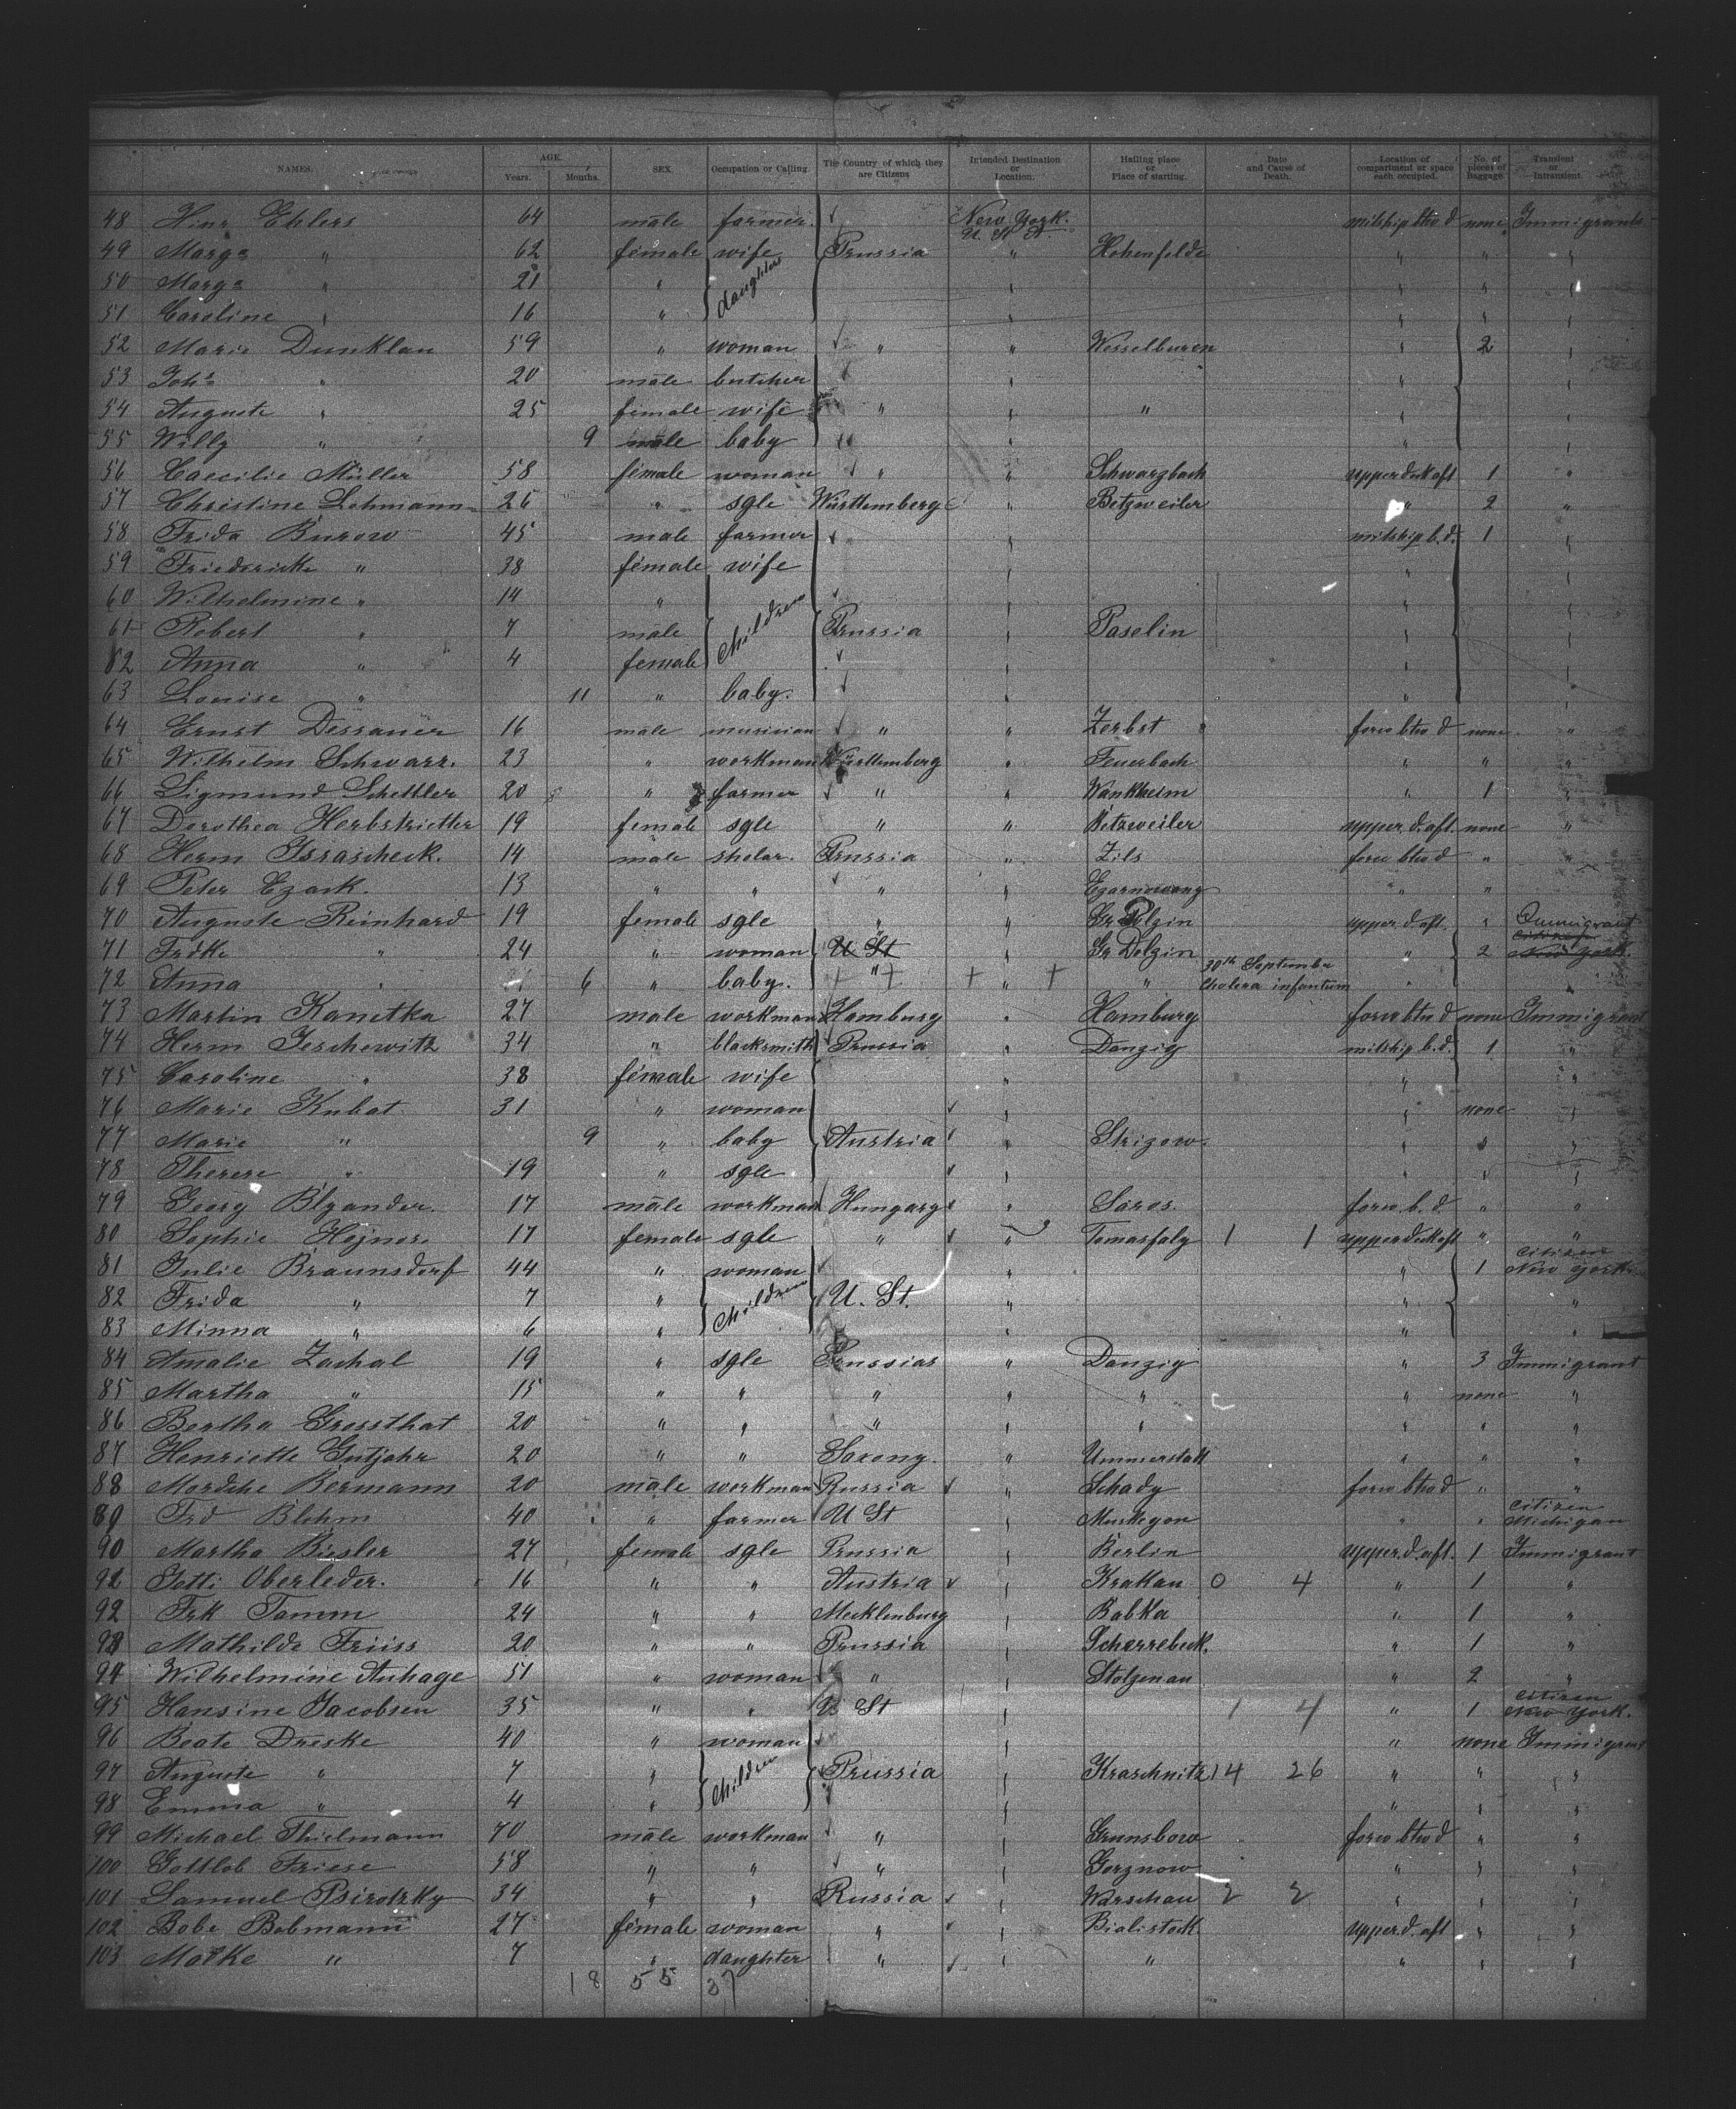 NAMES. AGE. Years. Months. SEX. Occupation or Calling. The Country of which they are Citizens Intended Destination or Location. Hailing place or Place of starting. Date and Cause of Death. Location of compartment or space each occupied. No. of pieces of Baggage. Transient or Intransient.
48 Hinr Ehlers 64 male farmer New York. U. St. N. none Immigrants
49 Marga " 62 female wife Prussia " Hohenfelde " " "
50 Marga " 21 " daughters " " " "
51 Caroline " 16 " " " " "
52 Marie Dunklau 59 " woman " " Wesselburen " 2 "
53 Johs " 20 male butcher " " "
54 Auguste " 25 female wife " " " " "
55 Willy " 9 male baby " " " "
56 Caecilie Müller 58 female woman " " Schwarzbach upper deck aft 1 "
57 Christine Lehmann 26 " sgle Württemberg " Betzweiler " 2 "
58 Frida Burow 45 male farmer " midship b.d. 1 "
59 Friedericke " 38 female wife " " "
60 Wilhelmine " 14 " Children " " "
61 Robert " 7 male Prussia " Paselin " "
62 Anna " 4 female " " "
63 Louise " 11 " baby. " " "
64 Ernst Dessauer 16 male musician " " Zerbst forw btw d none "
65 Wilhelm Schwarz. 23 " workman Württemberg " Feuerbach " " "
66 Sigmund Schettler 20 " farmer " " Wankheim " 1 "
67 Dorothea Herbstritter 19 female sgle " " Betzweiler upper d. aft. none "
68 Herm Issrascheck. 14 male sholar. Prussia " Zils forw btw d " "
69 Peter Czark. 13 " " " " " "
70 Auguste Reinhard 19 female sgle " " Gr. Polzin upper d. aft. " Immigrant
71 Frdke " 24 " woman U St " Gr Dolzin " 2 citizen New York.
72 Anna " 6 " baby. + " + + " + " 30th September Cholera infantum " "
73 Martin Kanetka 27 male workman Hamburg " Hamburg forw btw d none Immigrant
74 Herm Jeschewitz 34 " blacksmith Prussia " Danzig midship b.d. 1 "
75 Caroline " 38 female wife " " "
76 Marie Kubat 31 " woman " none "
77 Marie " 9 " baby Austria " Strizow. " " "
78 Therese " 19 " sgle " " " "
79 Georg Blzander. 17 male workman Hungary " Saros. forw. b. d " "
80 Sophie Hojnor. 17 female sgle " " Tomasfaly 1 1 upper deck aft " "
81 Julie Braunsdorf 44 " woman " " 1 citizen New York.
82 Frida " 7 " Children U. St. " " "
83 Minna " 6 " " " "
84 Amalie Zachal 19 " sgle Prussias " Danzig " 3 Immigrant
85 Martha " 15 " " " " " " none "
86 Bertha Grossthat 20 " " " " " " " "
87 Henriette Gutjahr 20 " " Saxony. " Ummerstatt " " "
88 Mordche Bermann 20 male workman Russia " Schady forw btw d " "
89 Frd Blohm 40 " farmer U St " Muskegon " " citizen Michigan
90 Martha Biesler 27 female sgle Prussia " Berlin upper. d. aft. 1 Immigrant
91 Jetti Oberleder. 16 " " Austria " Krakau 0 4 " 1 "
92 Frk Tamm 24 " " Mecklenburg " Babka " 1 "
93 Mathilde Friiss 20 " " Prussia " Scherrebeck. " 1 "
94 Wilhelmine Anhage 51 " woman " " Stolzenau " 2 "
95 Hansine Jacobsen 35 " " U St " 1 4 " 1 citizen New York.
96 Beate Dreske 40 " woman " " none Immigrant
97 Auguste " 7 " Children Prussia " Kraschnitz 14 26 " " "
98 Emma " 4 " " " " "
99 Michael Thielmann 70 male workman " " Grunsbow forw btw d " "
100 Gottlob Friese 58 " " " " Gorznow " " "
101 Samuel Psirotzky 34 " " Russia " Warschau 2 2 " " "
102 Bobe Bobmann 27 female woman " " Bialistock upper d. aft " "
103 Malke " 7 " daughter " " " " " "
18 55 37